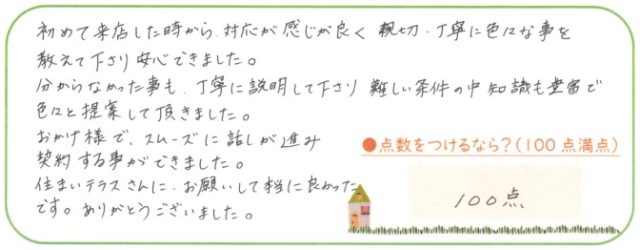 初めて来店した時から、対応が感じが良く 親切・丁寧に色々な事を
教えて下さり安心できました。
分からなかった事も、丁寧に説明して下さり 難しい条件の中 知識も豊富で
色々と提案して頂きました。
おかげ様で、スムーズに話しが進み
契約する事ができました。
住まいテラスさんに、お願いして本当に良かった
です。ありがとうございました。
●点数をつけるなら？(100点満点)
100点